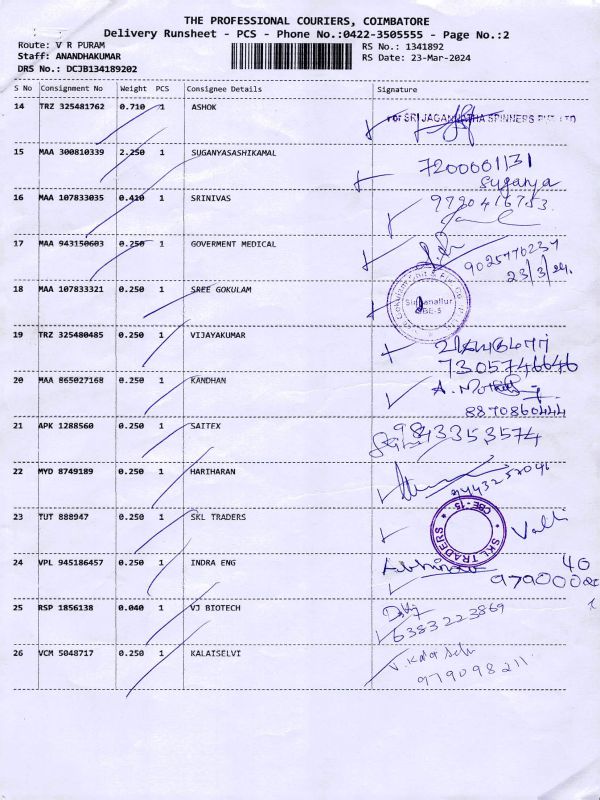 THE PROFESSIONAL COURIERS, COIMBATORE
Delivery Runsheet - PCS - Phone No.:0422-3505555 - Page No.:2
Route: V R PURAM
RS No.: 1341892
Staff: ANANDHAKUMAR
RS Date: 23-Mar-2024
DRS No.: DCJB134189202
S No Consignment No Weight PCS Consignee Details Signature
14 TRZ 325481762 0.710 1 ASHOK
For SRI JAGANNATHA SPINNERS PVT LTD
15 MAA 300810339 2.250 1 SUGANYASASHIKAMAL
7200001131
Suganya
16 MAA 107833035 0.410 1 SRINIVAS
9790416753
17 MAA 943150603 0.250 1 GOVERMENT MEDICAL
9025770237
23/3/24.
18 MAA 107833321 0.250 1 SREE GOKULAM
19 TRZ 325480485 0.250 1 VIJAYAKUMAR
விஜயகுமார்
7305746646
20 MAA 865027168 0.250 1 KANDHAN
8870860444
21 APK 1288560 0.250 1 SAITEX
9843353574
22 MYD 8749189 0.250 1 HARIHARAN
23 TUT 888947 0.250 1 SKL TRADERS
SKL TRADERS CBE-15
Valli
24 VPL 945186457 0.250 1 INDRA ENG
25 RSP 1856138 0.040 1 VJ BIOTECH
6383223869
26 VCM 5048717 0.250 1 KALAISELVI
V. Kalai Selvi
979098211